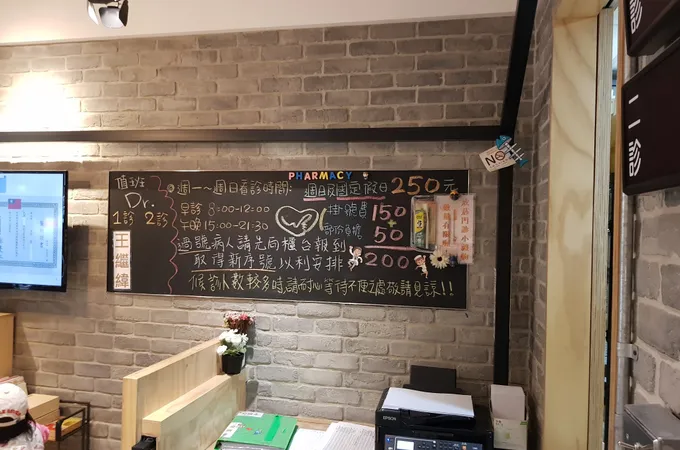 PHARMACY
值班
Dr.
1診 2診
王繼緯
週一～週日看診時間:
早診 8:00-12:00
午晚 15:00-21:30
過號病人請先向櫃台報到
取得新序號以利安排
候診人數較多時,請耐心等待不便之處敬請見諒!!
週日及國定假日250元
掛號費 150
部份負擔 50
200
NO
二診
EPSON